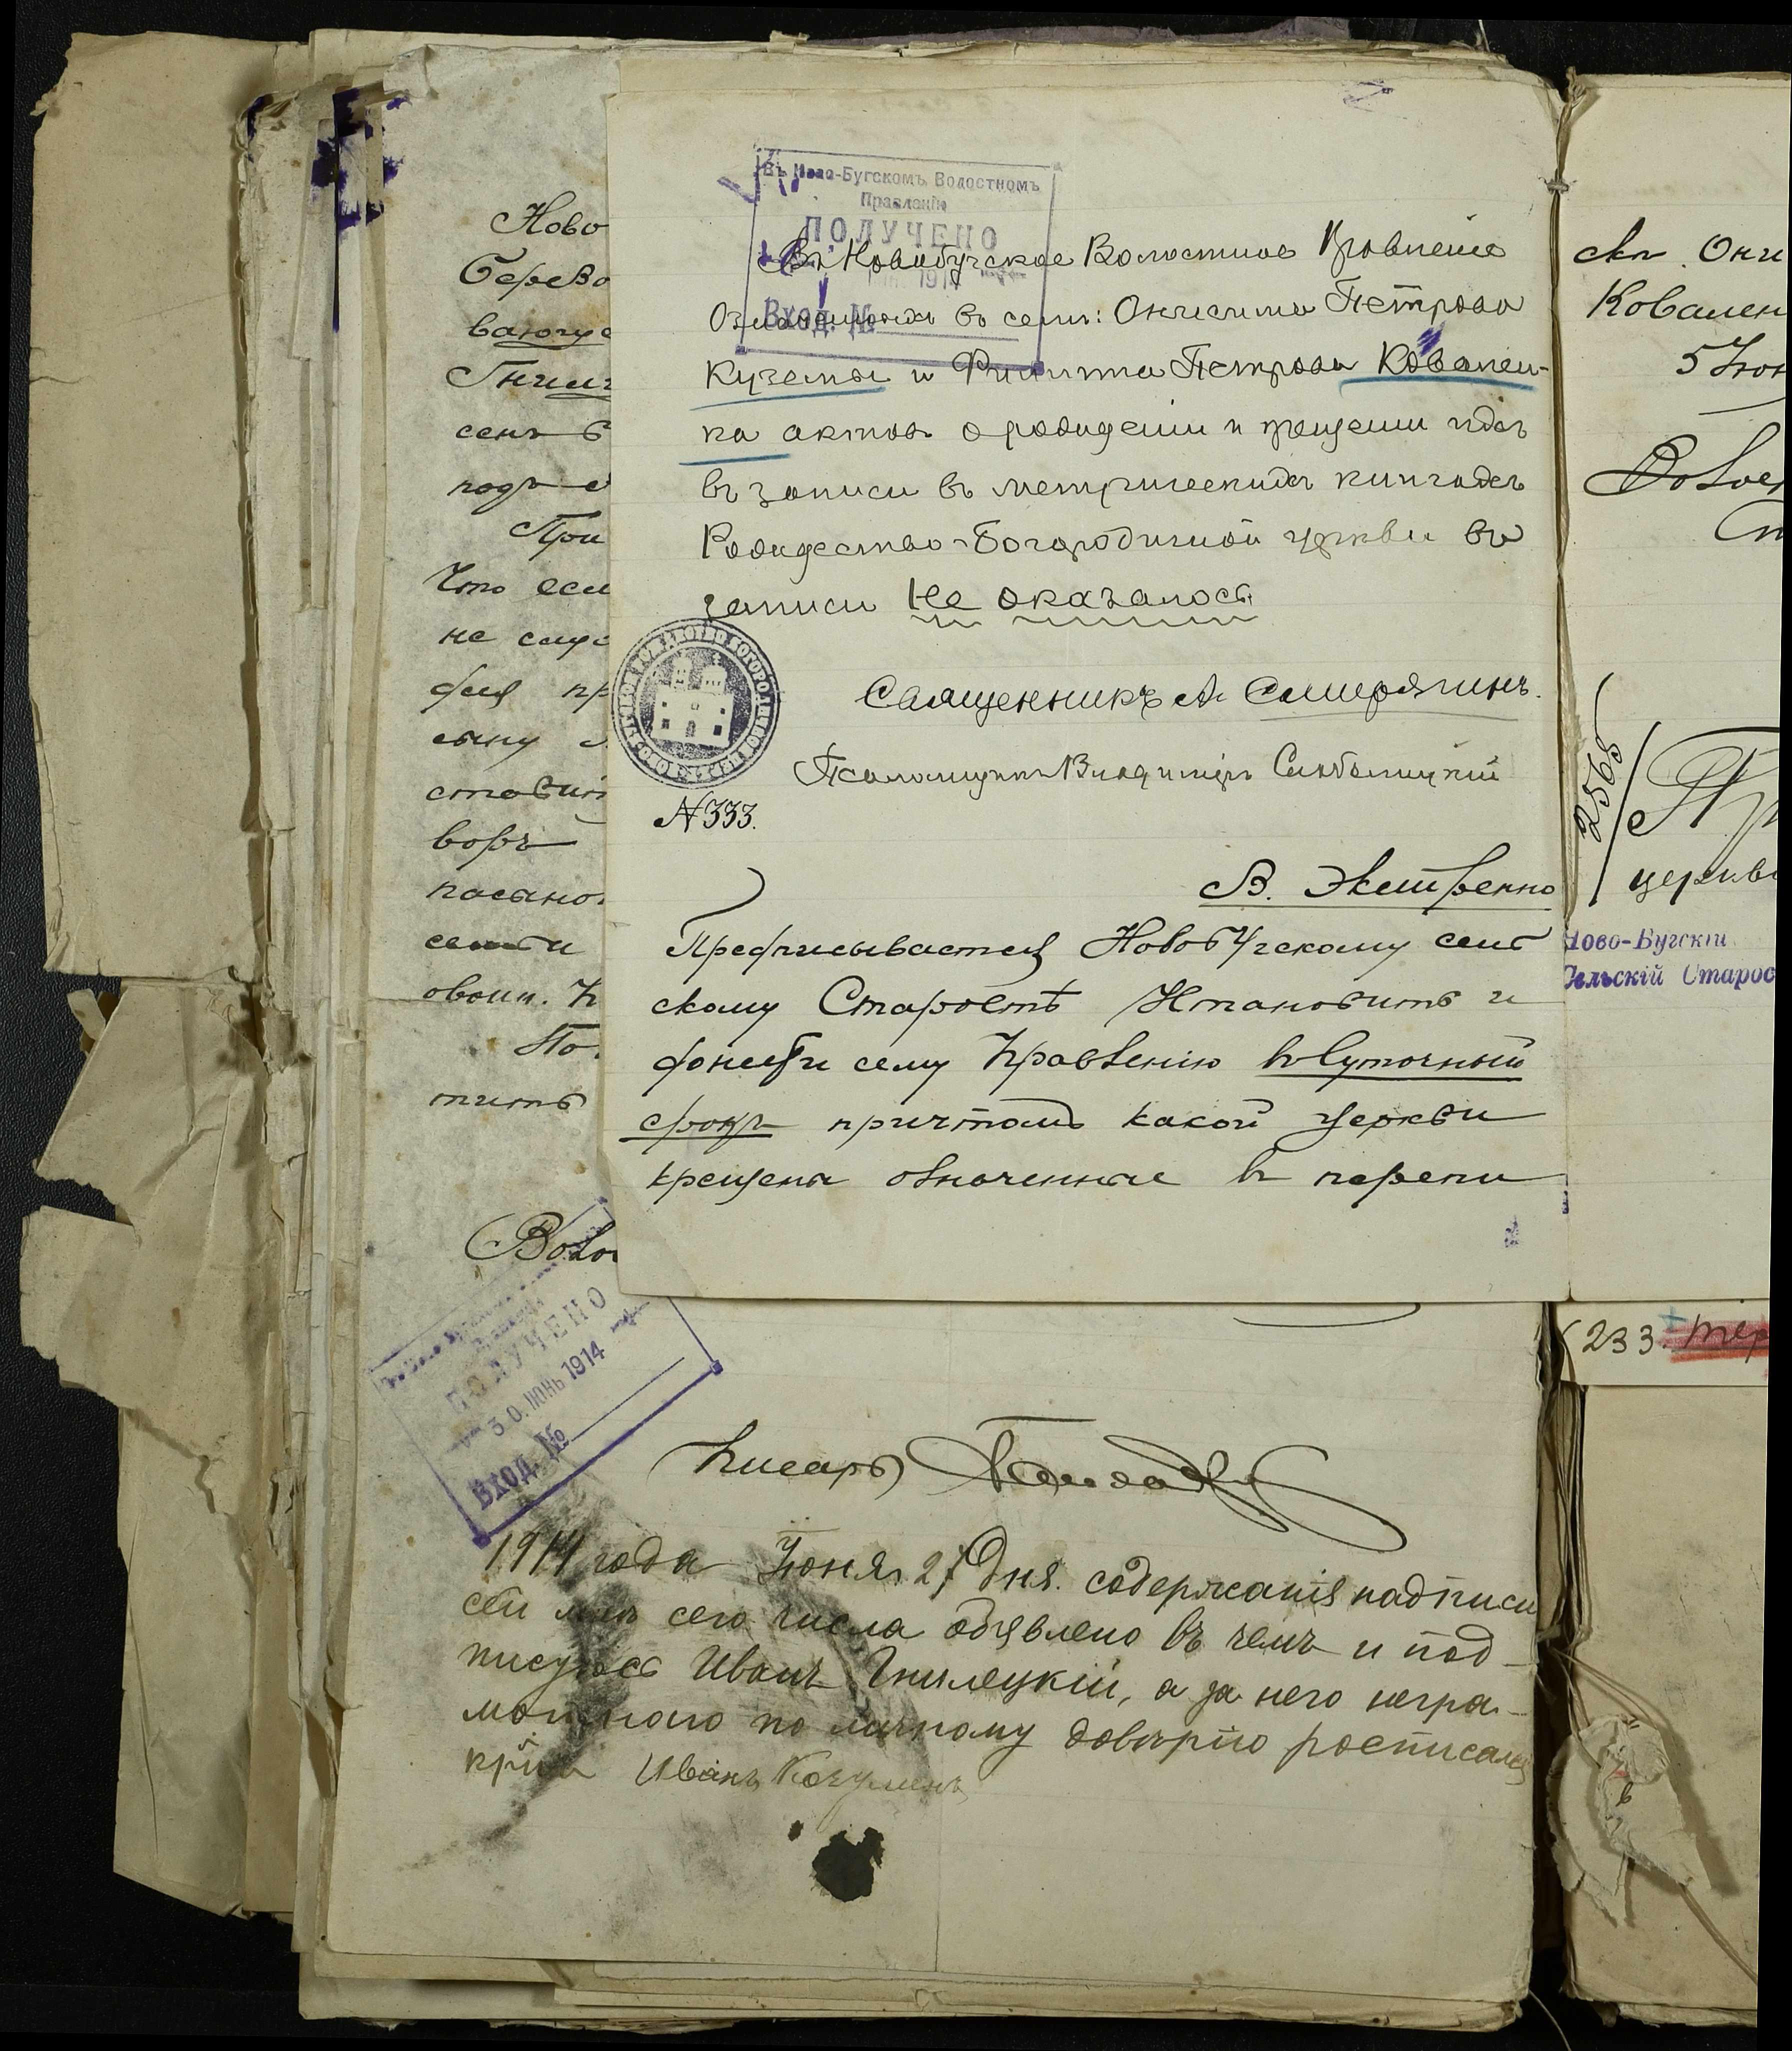 Въ Ново-Бугскомъ Волостномъ
Правленіи
ПОЛУЧЕНО
191
Вход. №
Въ Новобугское Волостное Правленіе
Означенныхъ въ семъ: Онисима Петрова
Куземы и Филиппа Петрова Ковален-
ка актовъ о рожденіи и крещеніи ихъ
въ записи въ метрическихъ книгахъ
Рождество-Богородичной церкви въ
записи не оказалось
Священникъ А.
Псаломщикъ Владиміръ
№ 333.
В. Экстренно
Предписывается Новобугскому сель
скому Старостѣ Установить и
донести сему Правленію въ суточный
срокъ причтомъ какой церкви
крещены означенные въ перепи
Ново
Берево
ваюгус
сенъ б
подъ
При
Что есл
не слус
для пр
сыну
ставит
воръ
писано
По
тить
Воло
ПОЛУЧЕНО
30. ІЮНЬ 1914
Вход. №
Писарь
1914 года Іюня 27 Дня. содержанія надписи
сей мнѣ сего числа обявлено въ чемъ и под-
писуюсь Иванъ Гнилецкій, а за него негра-
мотного по личному довѣрію росписался
Иванъ
ск. Они
Ковален
5 Іюн
Волос
Ст
2565
церкви
Ново-Бугскій
Сельскій Старос
233